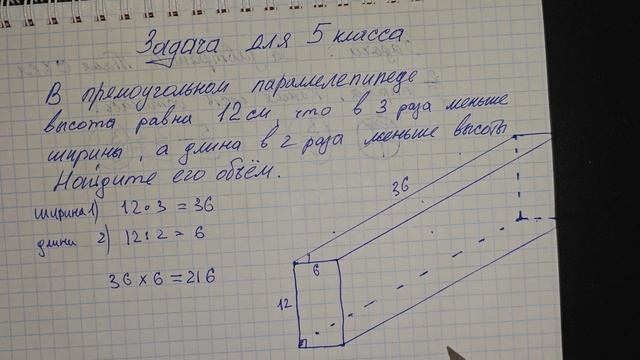 Задача для 5 класса
В прямоугольном параллелепипеде
высота равна 12 см, что в 3 раза меньше
ширины, а длина в 2 раза меньше высоты
Найдите его объём.
ширина 1) 12 • 3 = 36
длина 2) 12 : 2 = 6
36 x 6 = 216
36
6
12